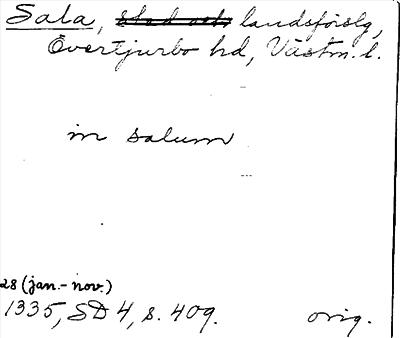 Sala, stad och landsförslg,
Övertjurbo hd, Västm. l.
in salum
28 (jan.- nov.)
1335, SD 4, s. 409. orig.